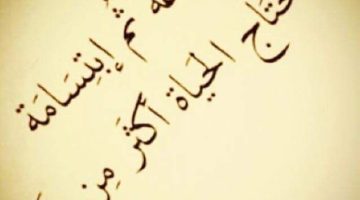 ثُم إِبتِسَامَة
الحَيَاة أَكثَر مِن